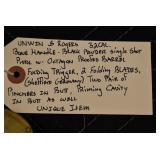 UNWIN & ROGERS 32 CAL.
BONE HANDLE - BLACK POWDER SINGLE SHOT
PARK W/ OCTAGON PROOFED BARREL
FOLDING TRIGGER, 2 FOLDING BLADES,
(SHEFFIELD GERMANY) TWO PAIR OF
PINCHERS IN BUTT, PRIMING CAVITY
IN BUTT AS WELL
UNIQUE ITEM